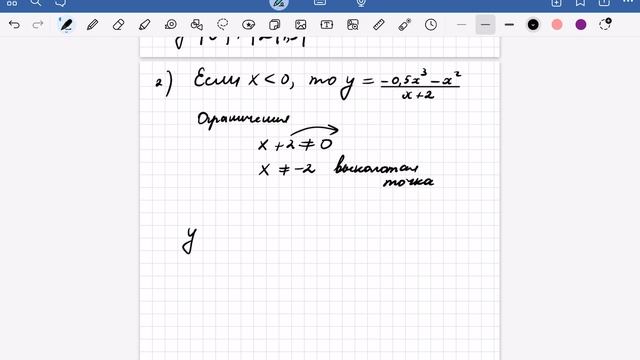 2) Если x < 0, то y = (-0,5x³ - x²)/(x+2)
Ограничения
x + 2 ≠ 0
x ≠ -2 выколотая
точка
y